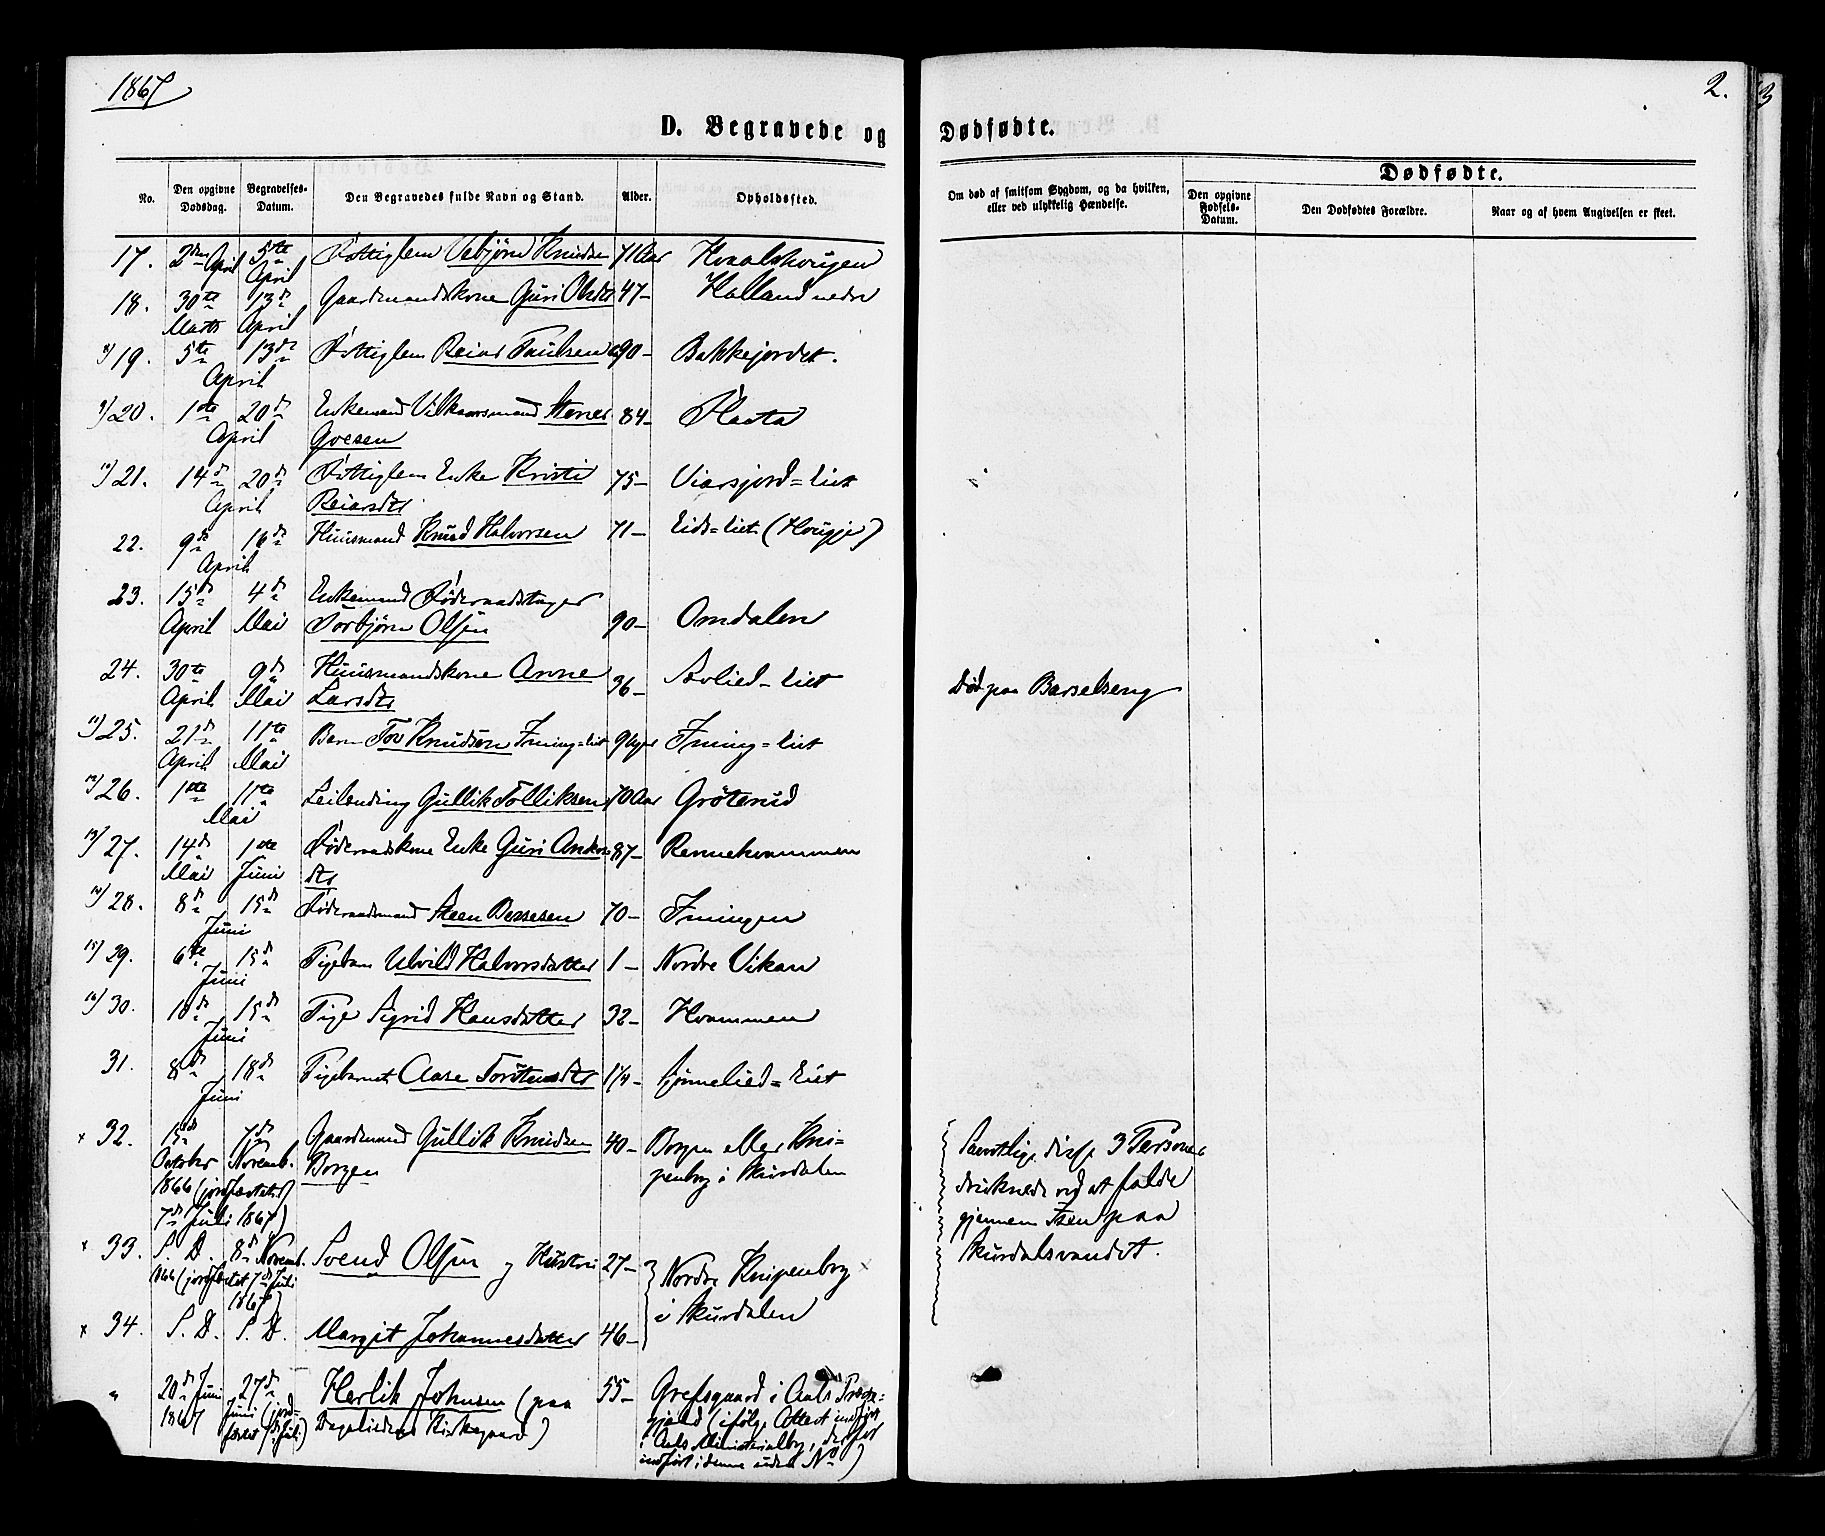 1867
2.
3
D. Begravede og Dødfødte.
No.
Den opgivne Dødsdag.
Begravelses-Datum.
Den Begravedes fulde Navn og Stand.
Alder.
Opholdssted.
Om død af smitsom Sygdom, og da hvilken, eller ved ulykkelig Hændelse.
Dødfødte.
Den opgivne Fødsels-Datum.
Den Dødfødtes Forældre.
Naar og af hvem Angivelsen er skeet.
17. 2den April 5te April Fattiglem Vebjørn Knudsen 71 Aar Hvalshougen
18. 30te Marts 13de April Gaardmandskone Guri Olsdtr 47- Halland nedre
8) 19. 5te April 13de Fattiglem Reiar Paulsen 90- Bakkejordet.
9) 20. 1ste April 20de Enkemand Vilkaarsmand Stener 84-
Goesen
10) 21. 14de April 20de Fattiglem Enke Kristi 75- Viarsjord=Eiet
Reiarsdtr
22. 9de April 16de Huusmand Knud Halvorsen 71- Eids=Eiet (Hougje)
23. 15de April 4de Mai Enkemand Føderaadstager
Torbjørn Olsen 90- Omdalen
24. 30te April 9de Mai Huusmandskone Anne 36- Aslied-Eiet
Larsdtr
Død paa Barselseng
11) 25. 21de April 11te Mai Barn Tov Knudsen Frning=Eiet 9 Uger Frning=Eiet
12) 26. 1ste Mai 11te Leilending Gullik Tolliksen 70 Aar Grøterud
13) 27. 14de Mai 1ste Juni Føderaadskone Enke Guri Anders 87- Rennehvammen
dtr
14) 28. 8de Juni 15de Føderaadsmand Steen Bersesen 70- Frningen
15) 29. 6te Juni 15de Pigebarn Ulvild Halvorsdatter 1- Nordre Vikan
16) 30. 10de Juni 15de Pige Sigrid Hansdatter 32- Hvammen
31. 8de Juni 18de Pigebarnet Aase Torstensdtr 1/4- Gjnnelied=Eiet
x 32. Octobr 1866 (jordfæstet 7de Juli 1867) 7de Novemb. Gaardmand Gullik Knudsen 40- Borgen eller Kni-
Borgen
penborg i Skurdalen
Samtlige disse 3 Personer
druknede ved at falde
gjennem Isen paa
Skurdalsvandet.
x 33. S. D. 8de Novemb. 1866 (jordfæstet 7de Juli 1867) Svend Olsen og Hustru 27- Nordre Knipenborg
i Skurdalen
x 34. S. D. S. D. Margit Johannesdatter 46-
" 20de Juni 1867 27de Juni (jordfæstet Juli) Herlik Johnsen (paa 55- Grefsgaard i Aals Præste-
Dagaliedens Kirkegaard)
gjeld (ifølge Attest indført
i Aals Ministerialbog, derfor
indført i denne uden No)